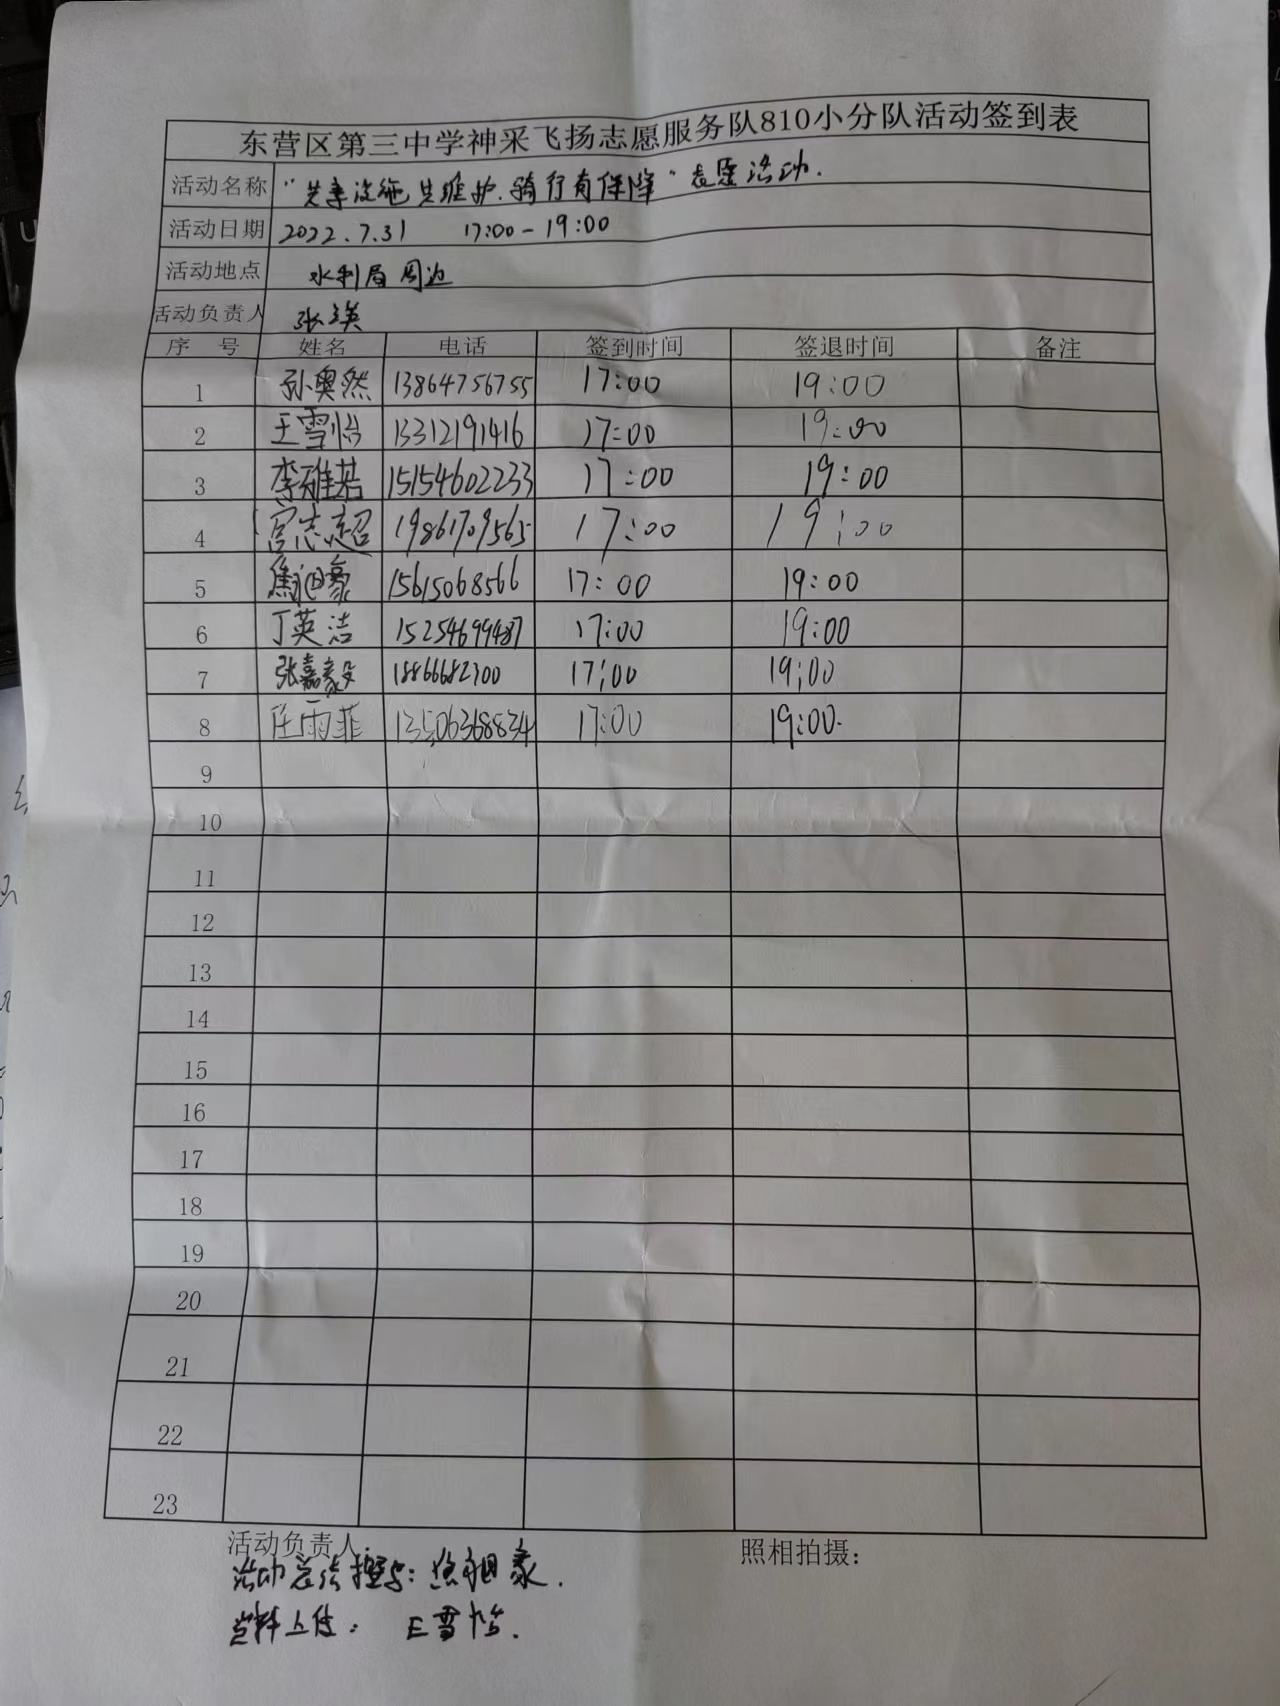 东营区第三中学神采飞扬志愿服务队810小分队活动签到表
活动名称 "共享设施共维护.骑行有保障"志愿活动.
活动日期 2022.7.31 17:00-19:00
活动地点 水利局周边
活动负责人 张瑛
序号 姓名 电话 签到时间 签退时间 备注
1 孙奥然 13864756755 17:00 19:00
2 王雪怡 13312191416 17:00 19:00
3 李雅若 15154602233 17:00 19:00
4 宫志超 19861709565 17:00 19:00
5 焦迦豪 15615068566 17:00 19:00
6 丁英洁 15254699487 17:00 19:00
7 张嘉毅 18866682300 17:00 19:00
8 任雨菲 13506368834 17:00 19:00.
9
10
11
12
13
14
15
16
17
18
19
20
21
22
23
活动负责人: 照相拍摄:
活动总结撰写: 豪.
资料上传: 王雪怡.